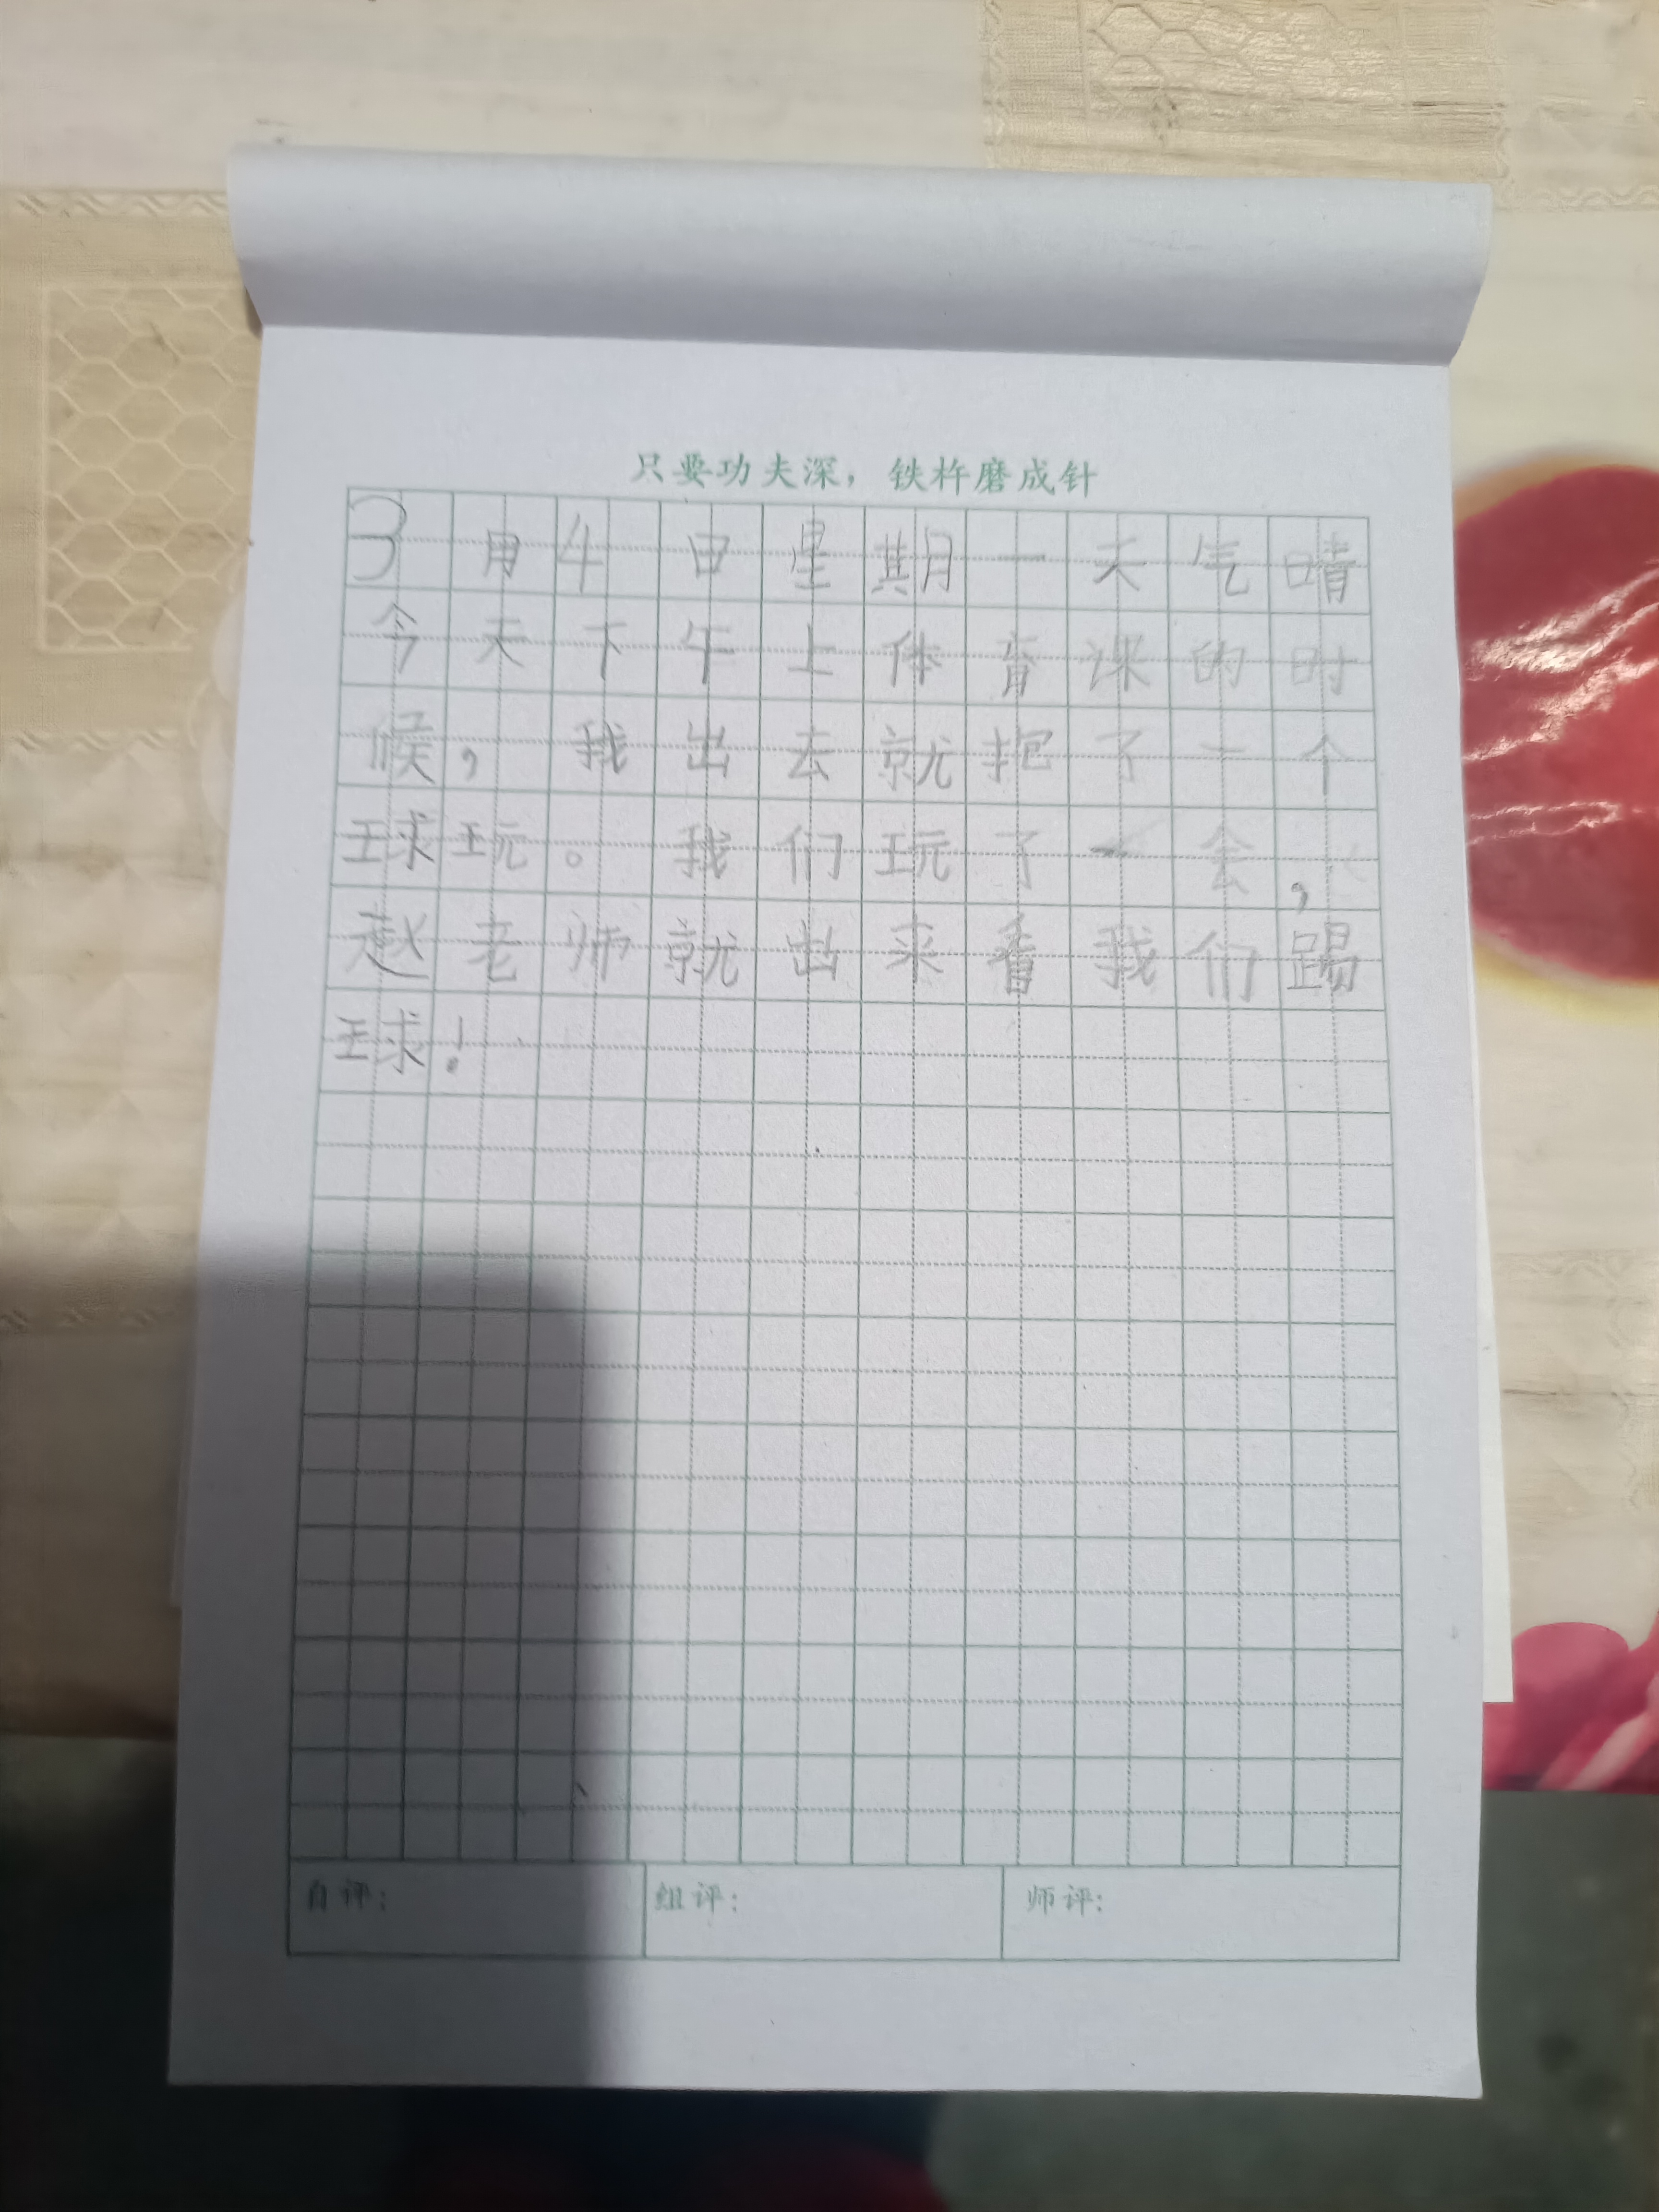 只要功夫深，铁杵磨成针
3月4日星期一天气晴
今天下午上体育课的时
候，我出去就抱了一个
球玩。我们玩了一会，
赵老师就出来看我们踢
球！
自评：
组评：
师评：